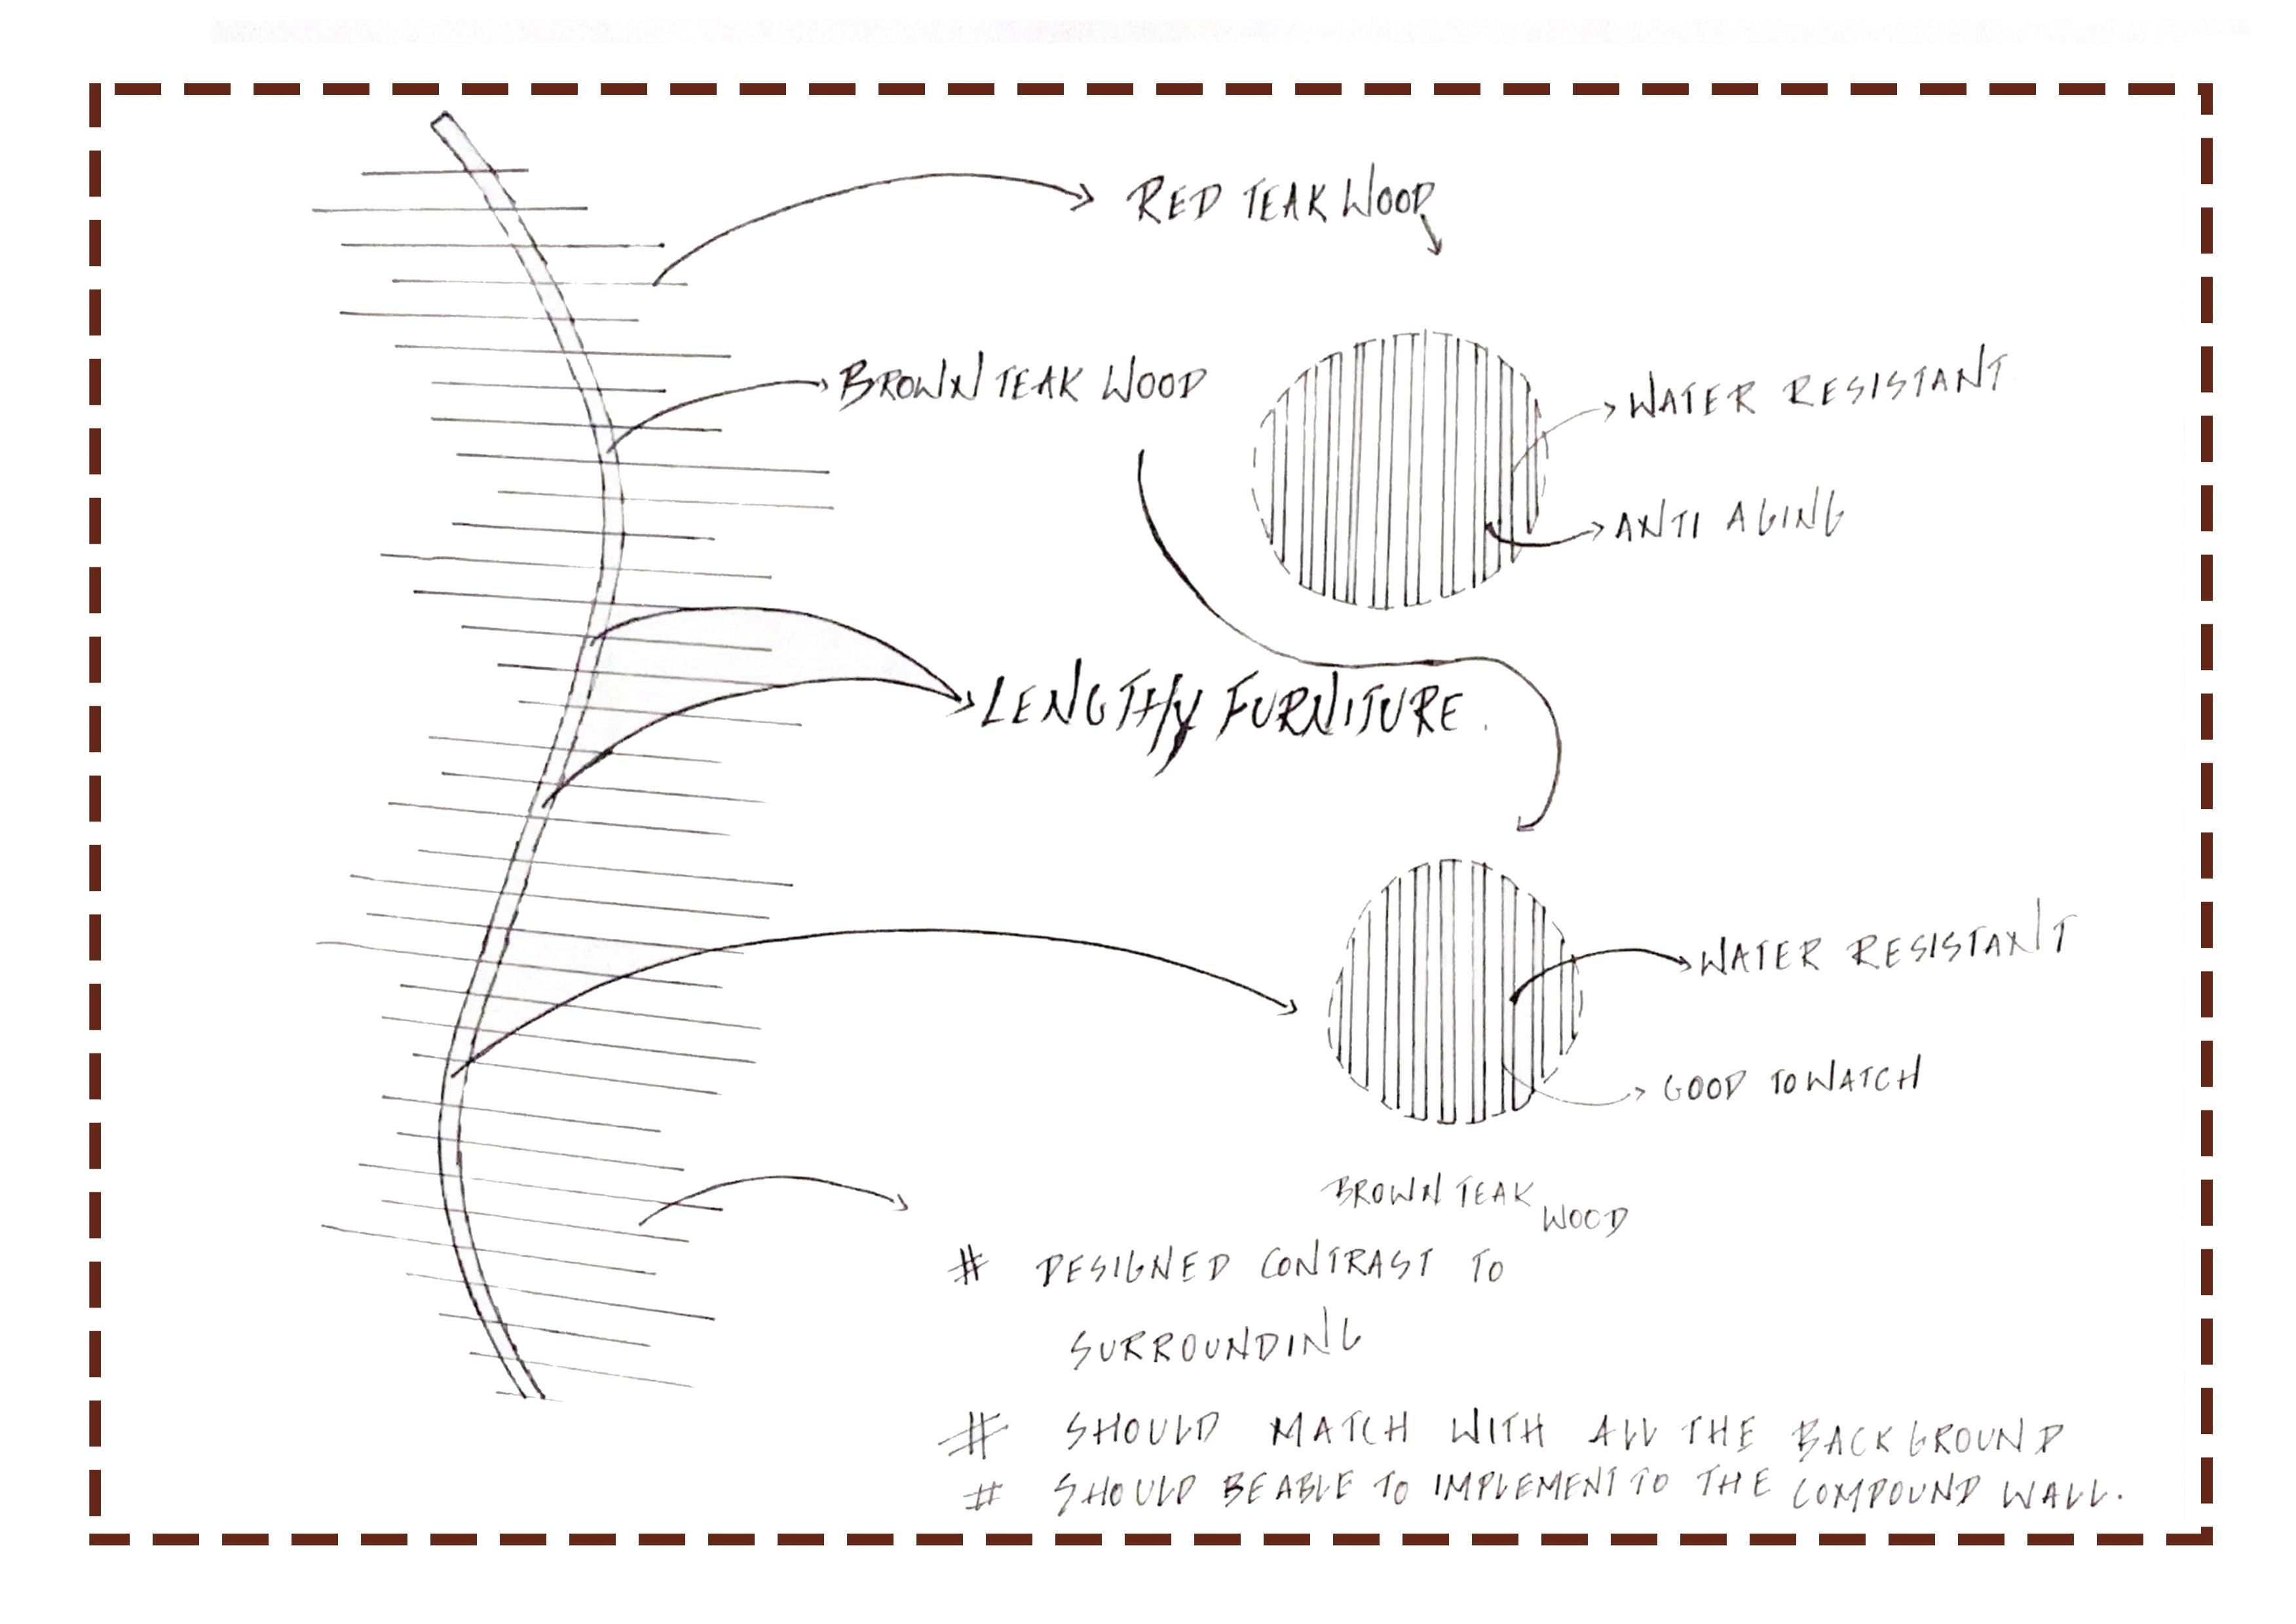 RED TEAK WOOD
BROWN TEAK WOOD
WATER RESISTANT
ANTI AGING
LENGTHY FURNITURE.
WATER RESISTANT
GOOD TO WATCH
BROWN TEAK
WOOD
# DESIGNED CONTRAST TO
SURROUNDING
# SHOULD MATCH WITH ALL THE BACKGROUND
# SHOULD BE ABLE TO IMPLEMENT TO THE COMPOUND WALL.